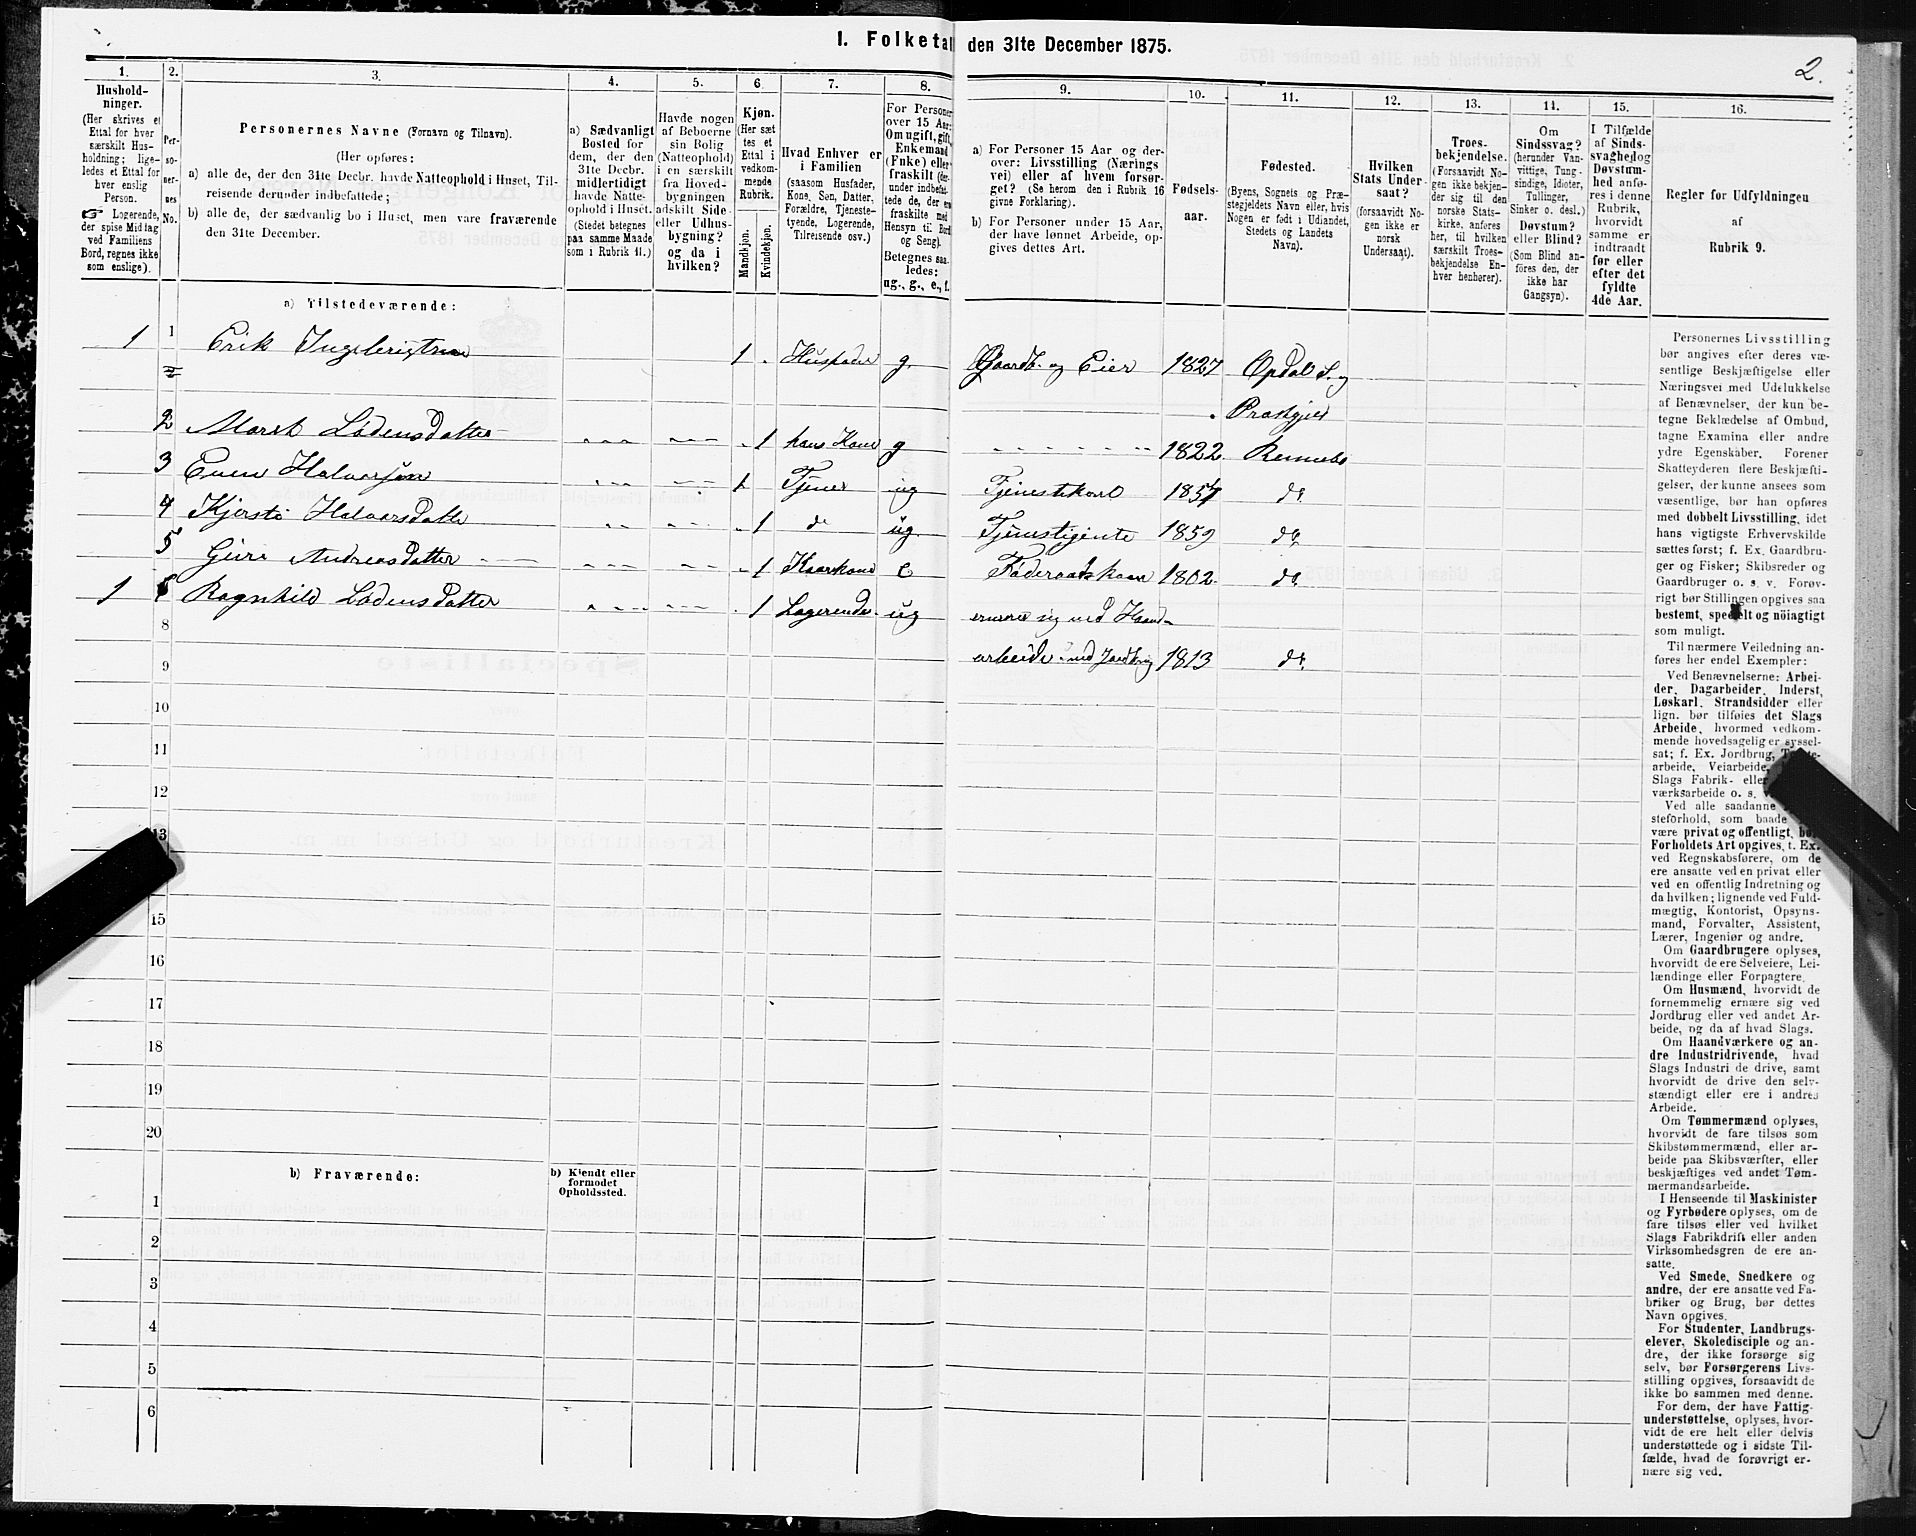 I. Folketal den 31te December 1875.
2.
1. 2. 3. 4. 5. 6. 7. 8. 9. 10. 11. 12. 13. 14. 15. 16.
Hushold-
ninger.
(Her skrives et
Ettal for hver
særskilt Hus-
holdning; lige-
ledes et Ettal for
hver enslig
Person.
☞ Logerende,
der spise Middag
ved Familiens
Bord, regnes ikke
som enslige).
Per-
so-
ner-
nes
No.
Personernes Navne (Fornavn og Tilnavn).
(Her opføres:
a) alle de, der den 31te Decbr. havde Natteophold i Huset, Til-
reisende derunder indbefattede;
b) alle de, der sædvanlig bo i Huset, men vare fraværende
den 31te December.
a) Sædvanligt
Bosted for
dem, der den
31te Decbr.
midlertidigt
havde Natte-
ophold i Huset.
(Stedet betegnes
paa samme Maade
som i Rubrik 11.)
Havde nogen
af Beboerne
sin Bolig
(Natteophold)
i en særskilt
fra Hoved-
bygningen
adskilt Side-
eller Udhus-
bygning?
og da i
hvilken?
Kjøn.
(Her sæt-
tes et
Ettal i
vedkom-
mende
Rubrik.
Mandkjøn.
Kvindekjøn.
Hvad Enhver er
i Familien
(saasom Husfader,
Kone, Søn, Datter,
Forældre, Tjeneste-
tyende, Logerende,
Tilreisende osv.)
For Personer
over 15 Aar:
Om ugift, gift,
Enkemand
(Enke) eller
fraskilt (der-
under indbefat-
tede de, der ere
fraskilte med
Hensyn til Bord
og Seng).
Betegnes saa-
ledes:
ug., g., e., f.
a) For Personer 15 Aar og der-
over: Livsstilling (Nærings
vei) eller af hvem forsør-
get? (Se herom den i Rubrik 16
givne Forklaring).
b) For Personer under 15 Aar,
der have lønnet Arbeide, op-
gives dettes Art.
Fødsels-
aar.
Fødested.
(Byens, Sognets og Præ-
stegjeldets Navn eller, hvis
Nogen er født i Udlandet,
Stedets og Landets
Navn).
Hvilken
Stats Under-
saat?
(forsaavidt No-
gen ikke er
norsk
Undersaat).
Troes-
bekjendelse.
(Forsaavidt No-
gen ikke bekjen-
der sig til den
norske Stats-
kirke, anføres
her, til hvilken
særskilt Troes-
bekjendelse En-
hver henhører).
Om
Sindssvag?
(herunder Van-
vittige, Tung-
sindige, Idioter,
Tullinger,
Sinker o. desl.)
Døvstum?
eller Blind?
(Som Blind an-
føres den, der
ikke har
Gangsyn).
I Tilfælde
af Sinds-
svaghed og
Døvstum-
hed anfø-
res i denne
Rubrik,
hvorvidt
samme er
indtraadt
før eller
efter det
fyldte
4de Aar.
Regler for Udfyldningen
af
Rubrik 9.
a) Tilstedeværende:
1 1 Erik Ingebrigtsen 1 Husfader g. Gaardb. og Eier 1827 Opdal S. og
Præstgjeld
2 Marit Lodensdatter 1 hans Kone g 1822 Rennebo
3 Even Halvorsen 1 Tjener ug Tjenestekarl 1857 do
4 Kjersti Halvorsdatter 1 do ug. Tjenestigjente 1859 do
5 Guri Andreasdatter 1 Kaarkone e Føderaadskone 1802 do
1 6 Ragnhild Lodensdatter 1 Logerende ug ernærer sig ved Haand-
arbeide ved Jordbrug 1813 do
8
9
10
11
12
13
15
16
17
18
19
20
b) Fraværende:
b) Kjendt eller
formodet
Opholdssted.
1
2
3
4
5
6
Personernes Livsstilling
bør angives efter deres væ-
sentlige Beskjæftigelse eller
Næringsvei med Udelukkelse
af Benævnelser, der kun be-
tegne Beklædelse af Ombud,
tagne Examina eller andre
ydre Egenskaber. Forener
Skatteyderen flere Beskjæfti-
gelser, der kunne ansees som
væsentlige, bør han opføres
med dobbelt Livsstilling, idet
hans vigtigste Erhvervskilde
sættes først; f. Ex. Gaardbru-
ger og Fisker; Skibsreder og
Gaardbruger o. s. v. Forøv-
rigt bør Stillingen opgives saa
bestemt, specielt og nöiagtigt
som muligt.
Til nærmere Veiledning an-
føres her endel Exempler:
Ved Benævnelserne: Arbei-
der, Dagarbeider, Inderst,
Løskarl, Strandsidder eller
lign. bør tilføies det Slags
Arbeide, hvormed vedkom-
mende hovedsagelig er syssel-
sat; f. Ex. Jordbrug,
arbeide, Veiarbeide,
Slags Fabrik- eller
værksarbeide o. s. v.
Ved alle saadanne
steforhold, som baade
være privat og offentligt, bør
Forholdets Art opgives, t. Ex.
ved Regnskabsførere, om de
ere ansatte ved en privat eller
ved en offentlig Indretning og
da hvilken; lignende ved Fuld-
mægtig, Kontorist, Opsyns-
mand, Forvalter, Assistent,
Lærer, Ingeniør og andre.
Om Gaardbrugere oplyses,
hvorvidt de ere Selveiere, Lei-
lændinge eller Forpagtere.
Om Husmænd, hvorvidt de
fornemmelig ernære sig ved
Jordbrug eller ved andet Ar-
beide, og da af hvad Slags.
Om Haandværkere og an-
dre Industridrivende, hvad
Slags Industri de drive, samt
hvorvidt de drive den selv-
stændigt eller ere i andres
Arbeide.
Om Tømmermænd oplyses,
hvorvidt de fare tilsøs som
Skibstømmermænd, eller ar-
beide paa Skibsværfter, eller
beskjæftiges ved andet Tøm-
mermandsarbeide.
I Henseende til Maskinister
og Fyrbødere oplyses, om de
fare tilsøs eller ved hvilket
Slags Fabrikdrift eller anden
Virksomhedsgren de ere an-
satte.
Ved Smede, Snedkere og
andre, der ere ansatte ved Fa-
briker og Brug, bør dettes
Navn opgives.
For Studenter, Landbrugs-
elever, Skoledisciple og an-
dre, der ikke forsørge sig
selv, bør Forsørgerens Livs-
stilling opgives, forsaavidt de
ikke bo sammen med denne.
For dem, der have Fattig-
understøttelse, oplyses, hvor-
vidt de ere helt eller delvis
understøttede og i sidste Til-
fælde, hvad de forøvrigt er-
nære sig ved.